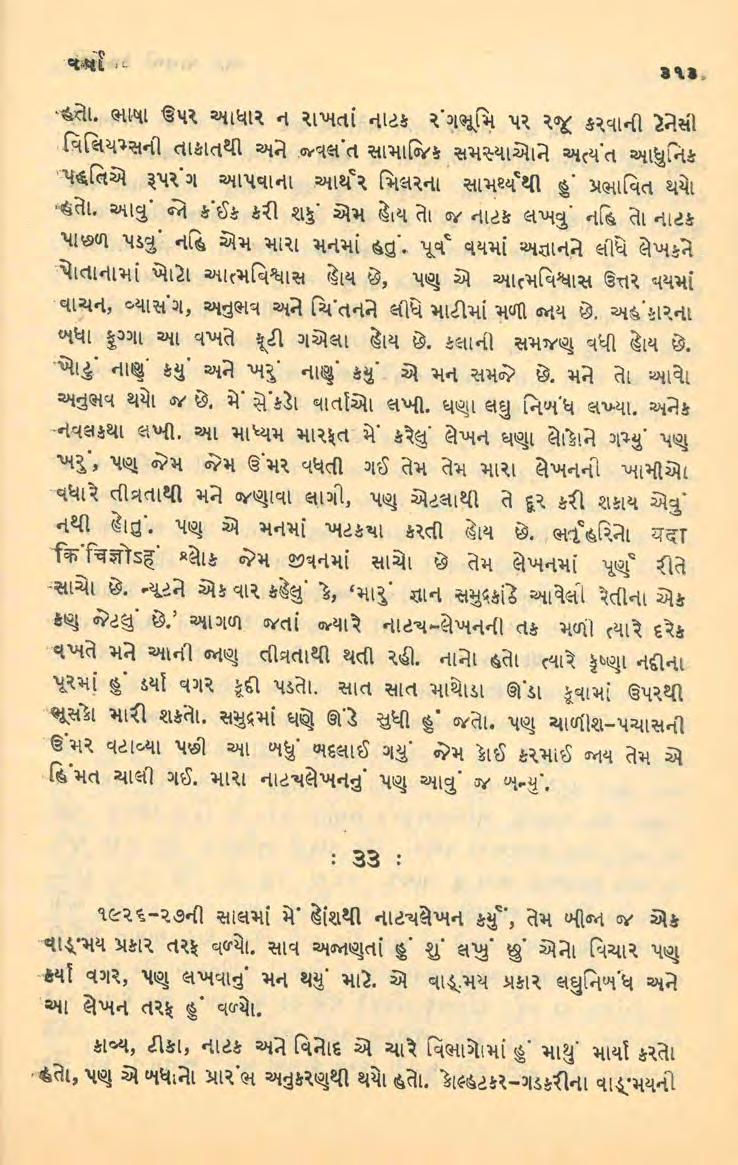 વર્ષા
૩૧૩
હતો. ભાષા ઉપર આધાર ન રાખતાં નાટક રંગભૂમિ પર રજૂ કરવાની ટેનેસી
વિલિયમ્સની તાકાતથી અને જ્વલંત સામાજિક સમસ્યાઓને અત્યંત આધુનિક
પદ્ધતિએ રૂપરંગ આપવાના આર્થર મિલરના સામર્થ્યથી હું પ્રભાવિત થયો
હતો. આવું જો કંઈક કરી શકું એમ હોય તો જ નાટક લખવું નહિ તો નાટક
પાછળ પડવું નહિ એમ મારા મનમાં હતું. પૂર્વ વયમાં અજ્ઞાનને લીધે લેખકને
પોતાનામાં ખોટો આત્મવિશ્વાસ હોય છે, પણ એ આત્મવિશ્વાસ ઉત્તર વયમાં
વાચન, વ્યાસંગ, અનુભવ અને ચિંતનને લીધે માટીમાં મળી જાય છે. અહંકારના
બધા ફુગ્ગા આ વખતે ફૂટી ગએલા હોય છે. કલાની સમજણ વધી હોય છે.
ખોટું નાણું કયું અને ખરું નાણું કયું એ મન સમજે છે. મને તો આવો
અનુભવ થયો જ છે. મેં સેંકડો વાર્તાઓ લખી. ઘણા લઘુ નિબંધ લખ્યા. અનેક
નવલકથા લખી. આ માધ્યમ મારફત મેં કરેલું લેખન ઘણા લોકોને ગમ્યું પણ
ખરું, પણ જેમ જેમ ઉંમર વધતી ગઈ તેમ તેમ મારા લેખનની ખામીઓ
વધારે તીવ્રતાથી મને જણાવા લાગી, પણ એટલાથી તે દૂર કરી શકાય એવું
નથી હોતું. પણ એ મનમાં ખટક્યા કરતી હોય છે. ભર્તૃહરિનો यदा
किंचिज्ञोऽहं શ્લોક જેમ જીવનમાં સાચો છે તેમ લેખનમાં પૂર્ણ રીતે
સાચો છે. ન્યૂટને એક વાર કહેલું કે, ‘મારું જ્ઞાન સમુદ્રકાંઠે આવેલી રેતીના એક
કણ જેટલું છે.’ આગળ જતાં જ્યારે નાટ્ય-લેખનની તક મળી ત્યારે દરેક
વખતે મને આની જાણ તીવ્રતાથી થતી રહી. નાનો હતો ત્યારે કૃષ્ણા નદીના
પૂરમાં હું ડર્યા વગર કૂદી પડતો. સાત સાત માથોડા ઊંડા કૂવામાં ઉપરથી
ભૂસકો મારી શકતો. સમુદ્રમાં ઘણે ઊંડે સુધી હું જતો. પણ ચાળીશ-પચાસની
ઉંમર વટાવ્યા પછી આ બધું બદલાઈ ગયું જેમ કોઈ કરમાઈ જાય તેમ એ
હિંમત ચાલી ગઈ. મારા નાટ્યલેખનનું પણ આવું જ બન્યું.
: 33 :
૧૯૨૬-૨૭ની સાલમાં મેં હોંશથી નાટ્યલેખન કર્યું, તેમ બીજા જ એક
વાઙ્મય પ્રકાર તરફ વળ્યો. સાવ અજાણતાં હું શું લખું છું એનો વિચાર પણ
કર્યા વગર, પણ લખવાનું મન થયું માટે. એ વાઙ્મય પ્રકાર લઘુનિબંધ અને
આ લેખન તરફ હું વળ્યો.
કાવ્ય, ટીકા, નાટક અને વિનોદ એ ચારે વિભાગોમાં હું માથું માર્યા કરતો
હતો, પણ એ બધાનો પ્રારંભ અનુકરણથી થયો હતો. કોલ્હટકર-ગડકરીના વાઙ્મયની